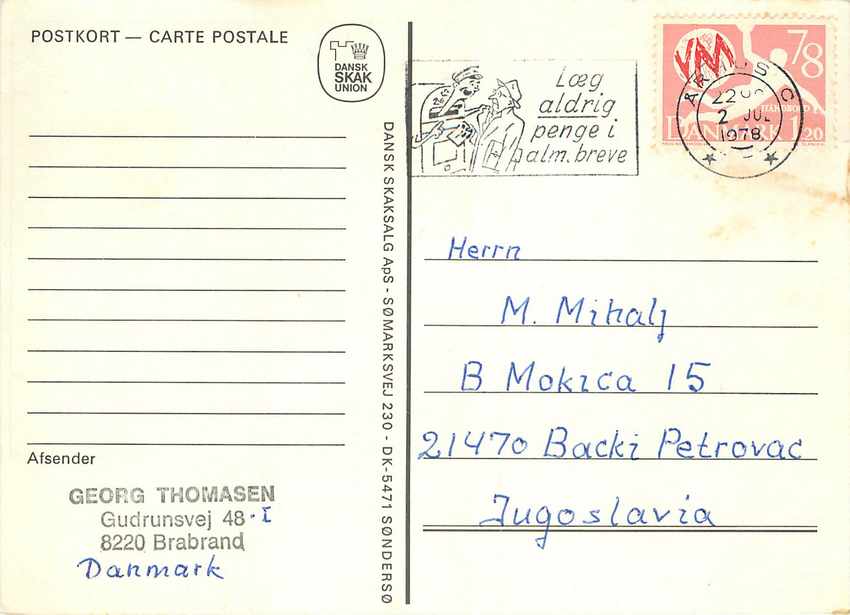 POSTKORT — CARTE POSTALE
DANSK
SKAK
UNION
Afsender
GEORG THOMASEN
Gudrunsvej 48·I
8220 Brabrand
Danmark
DANSK SKAKSALG ApS - SØMARKSVEJ 230 - DK-5471 SØNDERSØ
Læg
aldrig
penge i
alm. breve
VM 78
HÅNDBOLD
DANMARK 1.20
ÅRHUS C
2 JUL
1978
Herrn
M. Mihalj
B Mokica 15
21470 Backi Petrovac
Jugoslavia